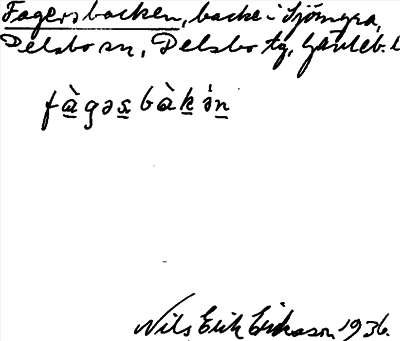 Fagersbacken, backe i Sjömyra,
Delsbo sn, Delsbo tg, Gävleb. l
fàgəsbàkən
Nils Erik Eriksson 1936.